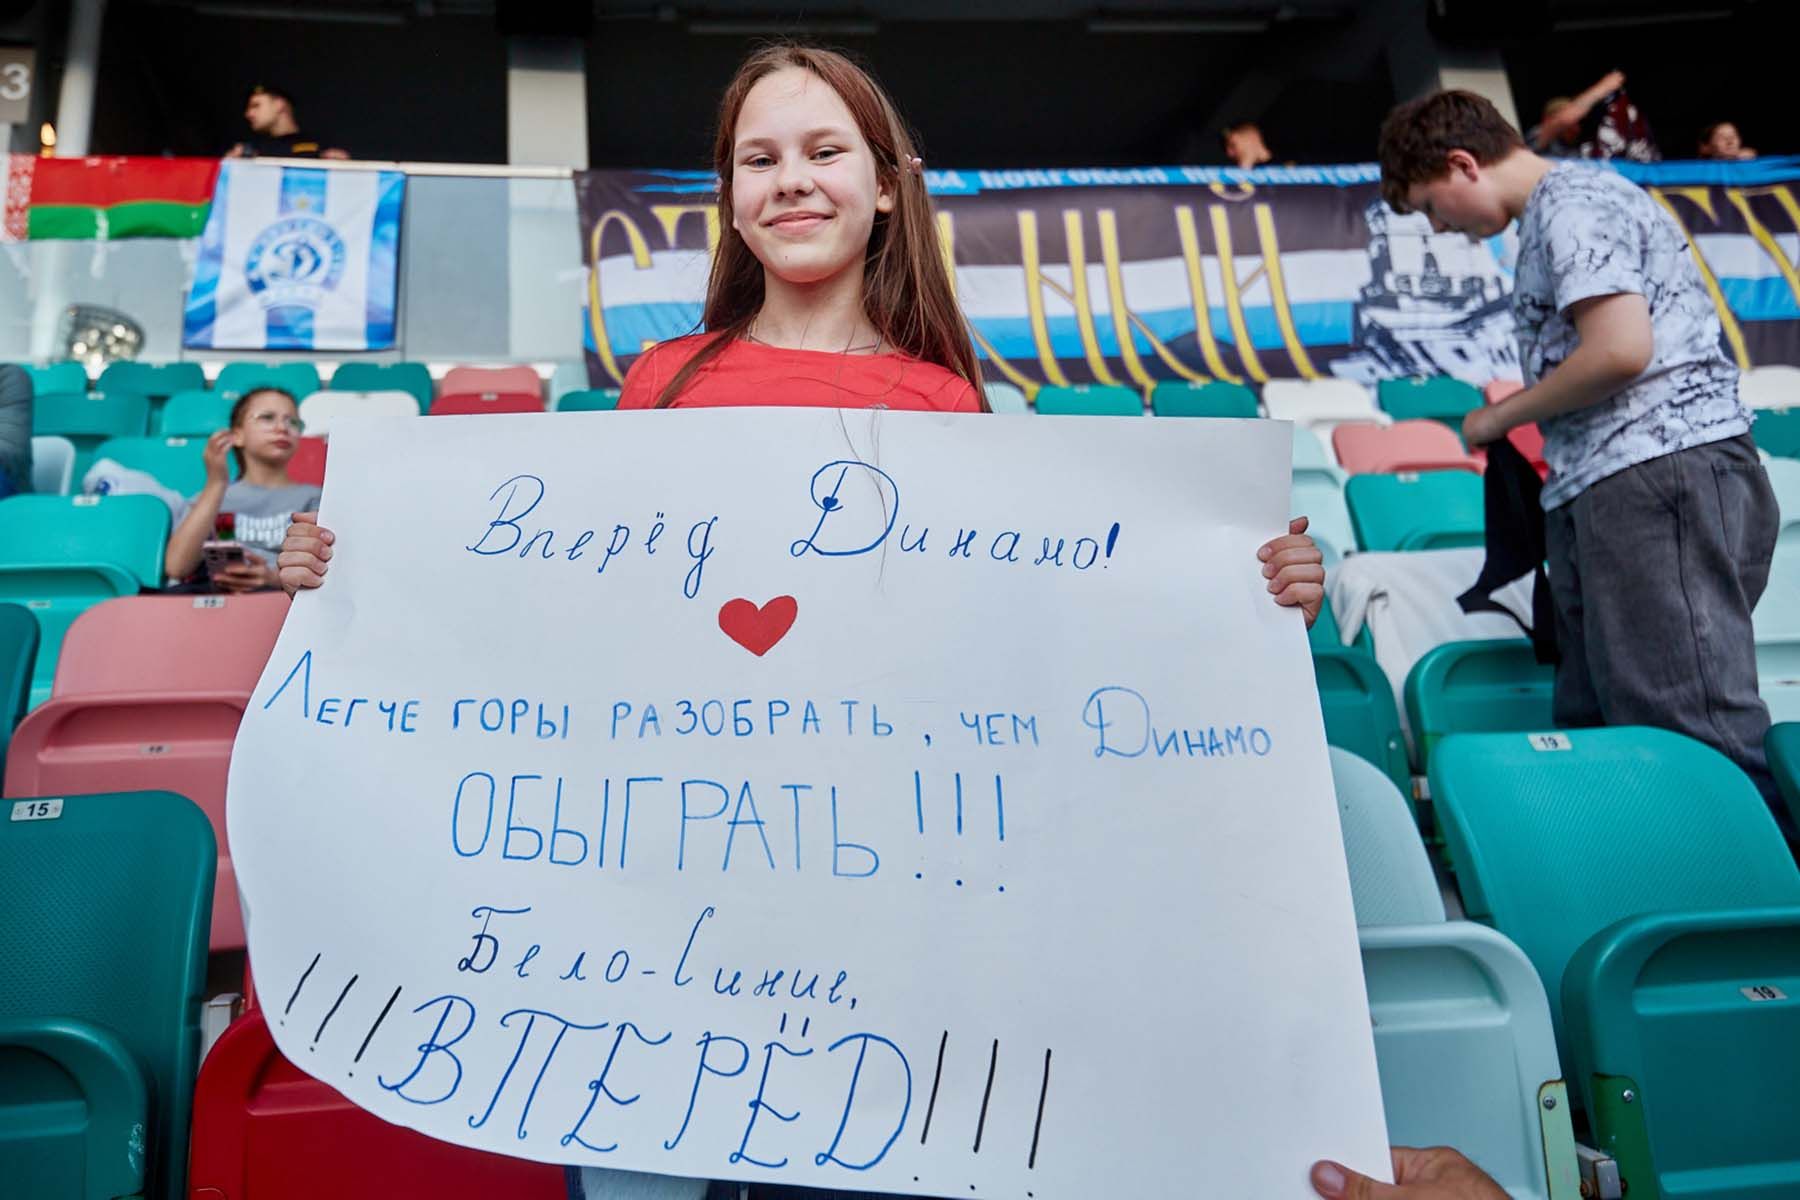 3
Вперёд Динамо!
Легче горы разобрать, чем Динамо
ОБЫГРАТЬ!!!
Бело-Синие,
!!!ВПЕРЁД!!!
15
19
19
15